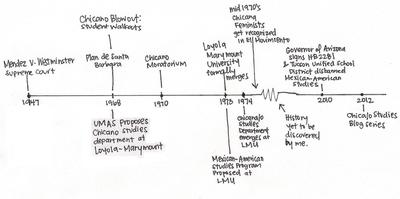 Chicano Blowout:
Student Walkouts
Mendez V. Westminster
Supreme Court
Plan de Santa
Barbara
Chicano
Moratorium
Loyola
Marymount
University
formally
merges
mid 1970's
Chicana
Feminists
get recognized
in El Movimiento
Governor of Arizona
signs HB 2281
& Tucson Unified School
District disbanned
Mexican-American
Studies
1947
1968
1970
1973
1974
2010
2012
UMAS Proposes
Chicano Studies
department at
Loyola-Marymount
Mexican-American
Studies Program
Proposed at
LMU
Chicana/o
Studies
Department
emerges at
LMU
History
yet to be
discovered
by me.
Chica/o Studies
Blog series